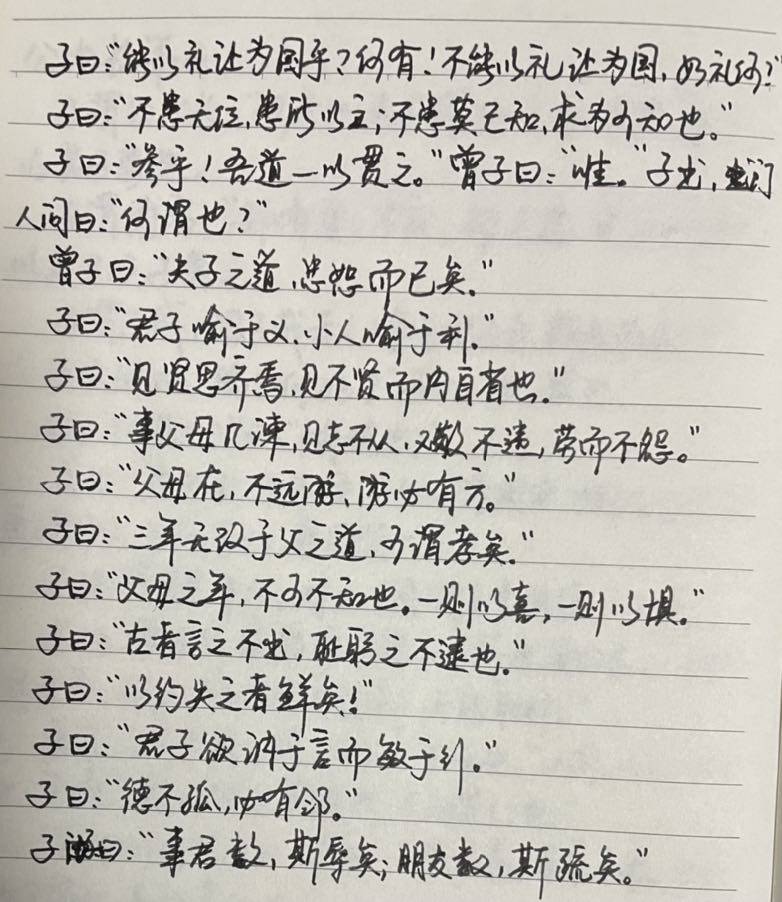 子曰："能以礼让为国乎？何有！不能以礼让为国，如礼何？"
子曰："不患无位，患所以立；不患莫己知，求为可知也。"
子曰："参乎！吾道一以贯之。"曾子曰："唯。"子出，门
人问曰："何谓也？"
曾子曰："夫子之道，忠恕而已矣。"
子曰："君子喻于义，小人喻于利。"
子曰："见贤思齐焉，见不贤而内自省也。"
子曰："事父母几谏，见志不从，又敬不违，劳而不怨。"
子曰："父母在，不远游，游必有方。"
子曰："三年无改于父之道，可谓孝矣。"
子曰："父母之年，不可不知也。一则以喜，一则以惧。"
子曰："古者言之不出，耻躬之不逮也。"
子曰："以约失之者鲜矣！"
子曰："君子欲讷于言而敏于行。"
子曰："德不孤，必有邻。"
子游曰："事君数，斯辱矣；朋友数，斯疏矣。"